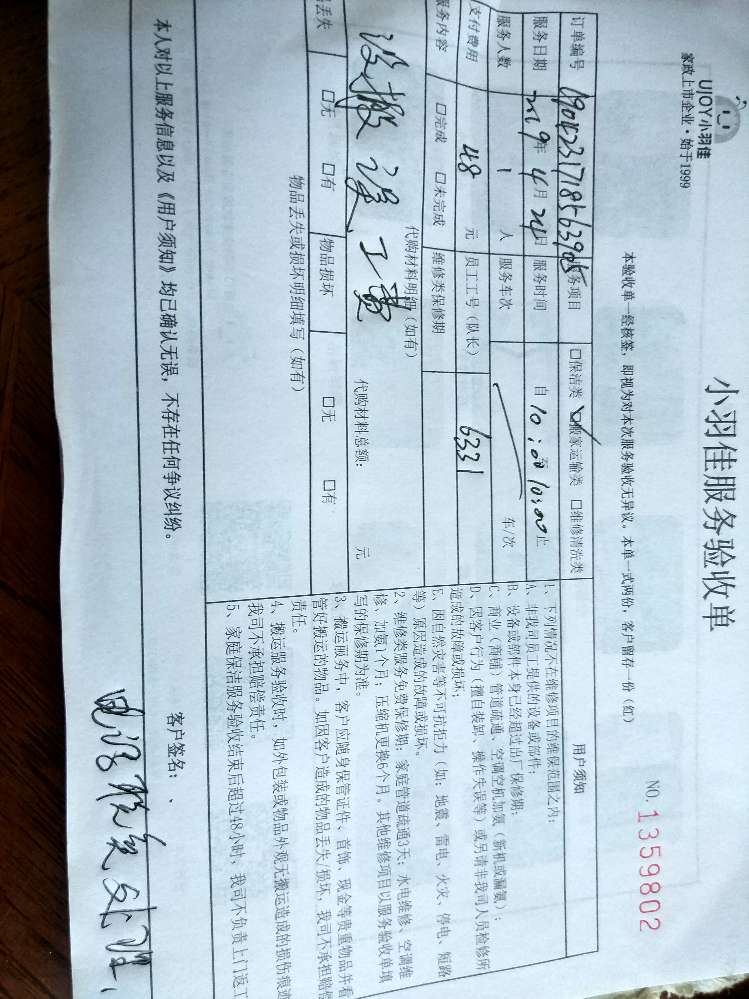 UJOY小羽佳
家政上市企业·始于1999
小羽佳服务验收单
NO. 1359802
本验收单一经核签，即视为对本次服务验收无异议。本单一式两份，客户留存一份（红）
订单编号 1904231718563905 服务项目 □保洁类 ☑搬家运输类 □维修清洗类
服务日期 2019年4月24日 服务时间 自10:00至10:00止
服务人数 1 人 服务车次 年/次
支付费用 48 元 员工工号（队长） 6331
服务内容 □完成 □未完成 维修类保修期
代购材料明细（如有）
没搬 误工费
代购材料总额： 元
丢失 □无 □有 物品损坏 □无 □有
物品丢失或损坏明细填写（如有）
用户须知
1、下列情况不在维修项目的维保范围之内：
A、非我司员工提供的设备或部件；
B、设备或部件本身已经超过出厂保修期；
C、商业（商铺）管道疏通、空调空机加氨（新机或漏氨）；
D、因客户行为（擅自装卸、操作失误等）或另请非我司人员检修所
造成的故障或损坏；
E、因自然灾害等不可抗拒力（如：地震、雷电、火灾、停电、短路
等）原因造成的故障或损坏。
2、维修类服务免费保修期：家庭管道疏通3天；水电维修、空调维
修、加氨1个月；压缩机更换6个月。其他维修项目以服务验收单填
写的保修期为准。
3、搬运服务中，客户应随身保管证件、首饰、现金等贵重物品并看
管好搬运的物品。如因客户造成的物品丢失/损坏，我司不承担赔偿
责任。
4、搬运服务验收时，如外包装或物品外观无搬运造成的损伤痕迹
我司不承担赔偿责任。
5、家庭保洁服务验收结束后超过48小时，我司不负责上门返工
本人对以上服务信息以及《用户须知》均已确认无误，不存在任何争议纠纷。
客户签名：